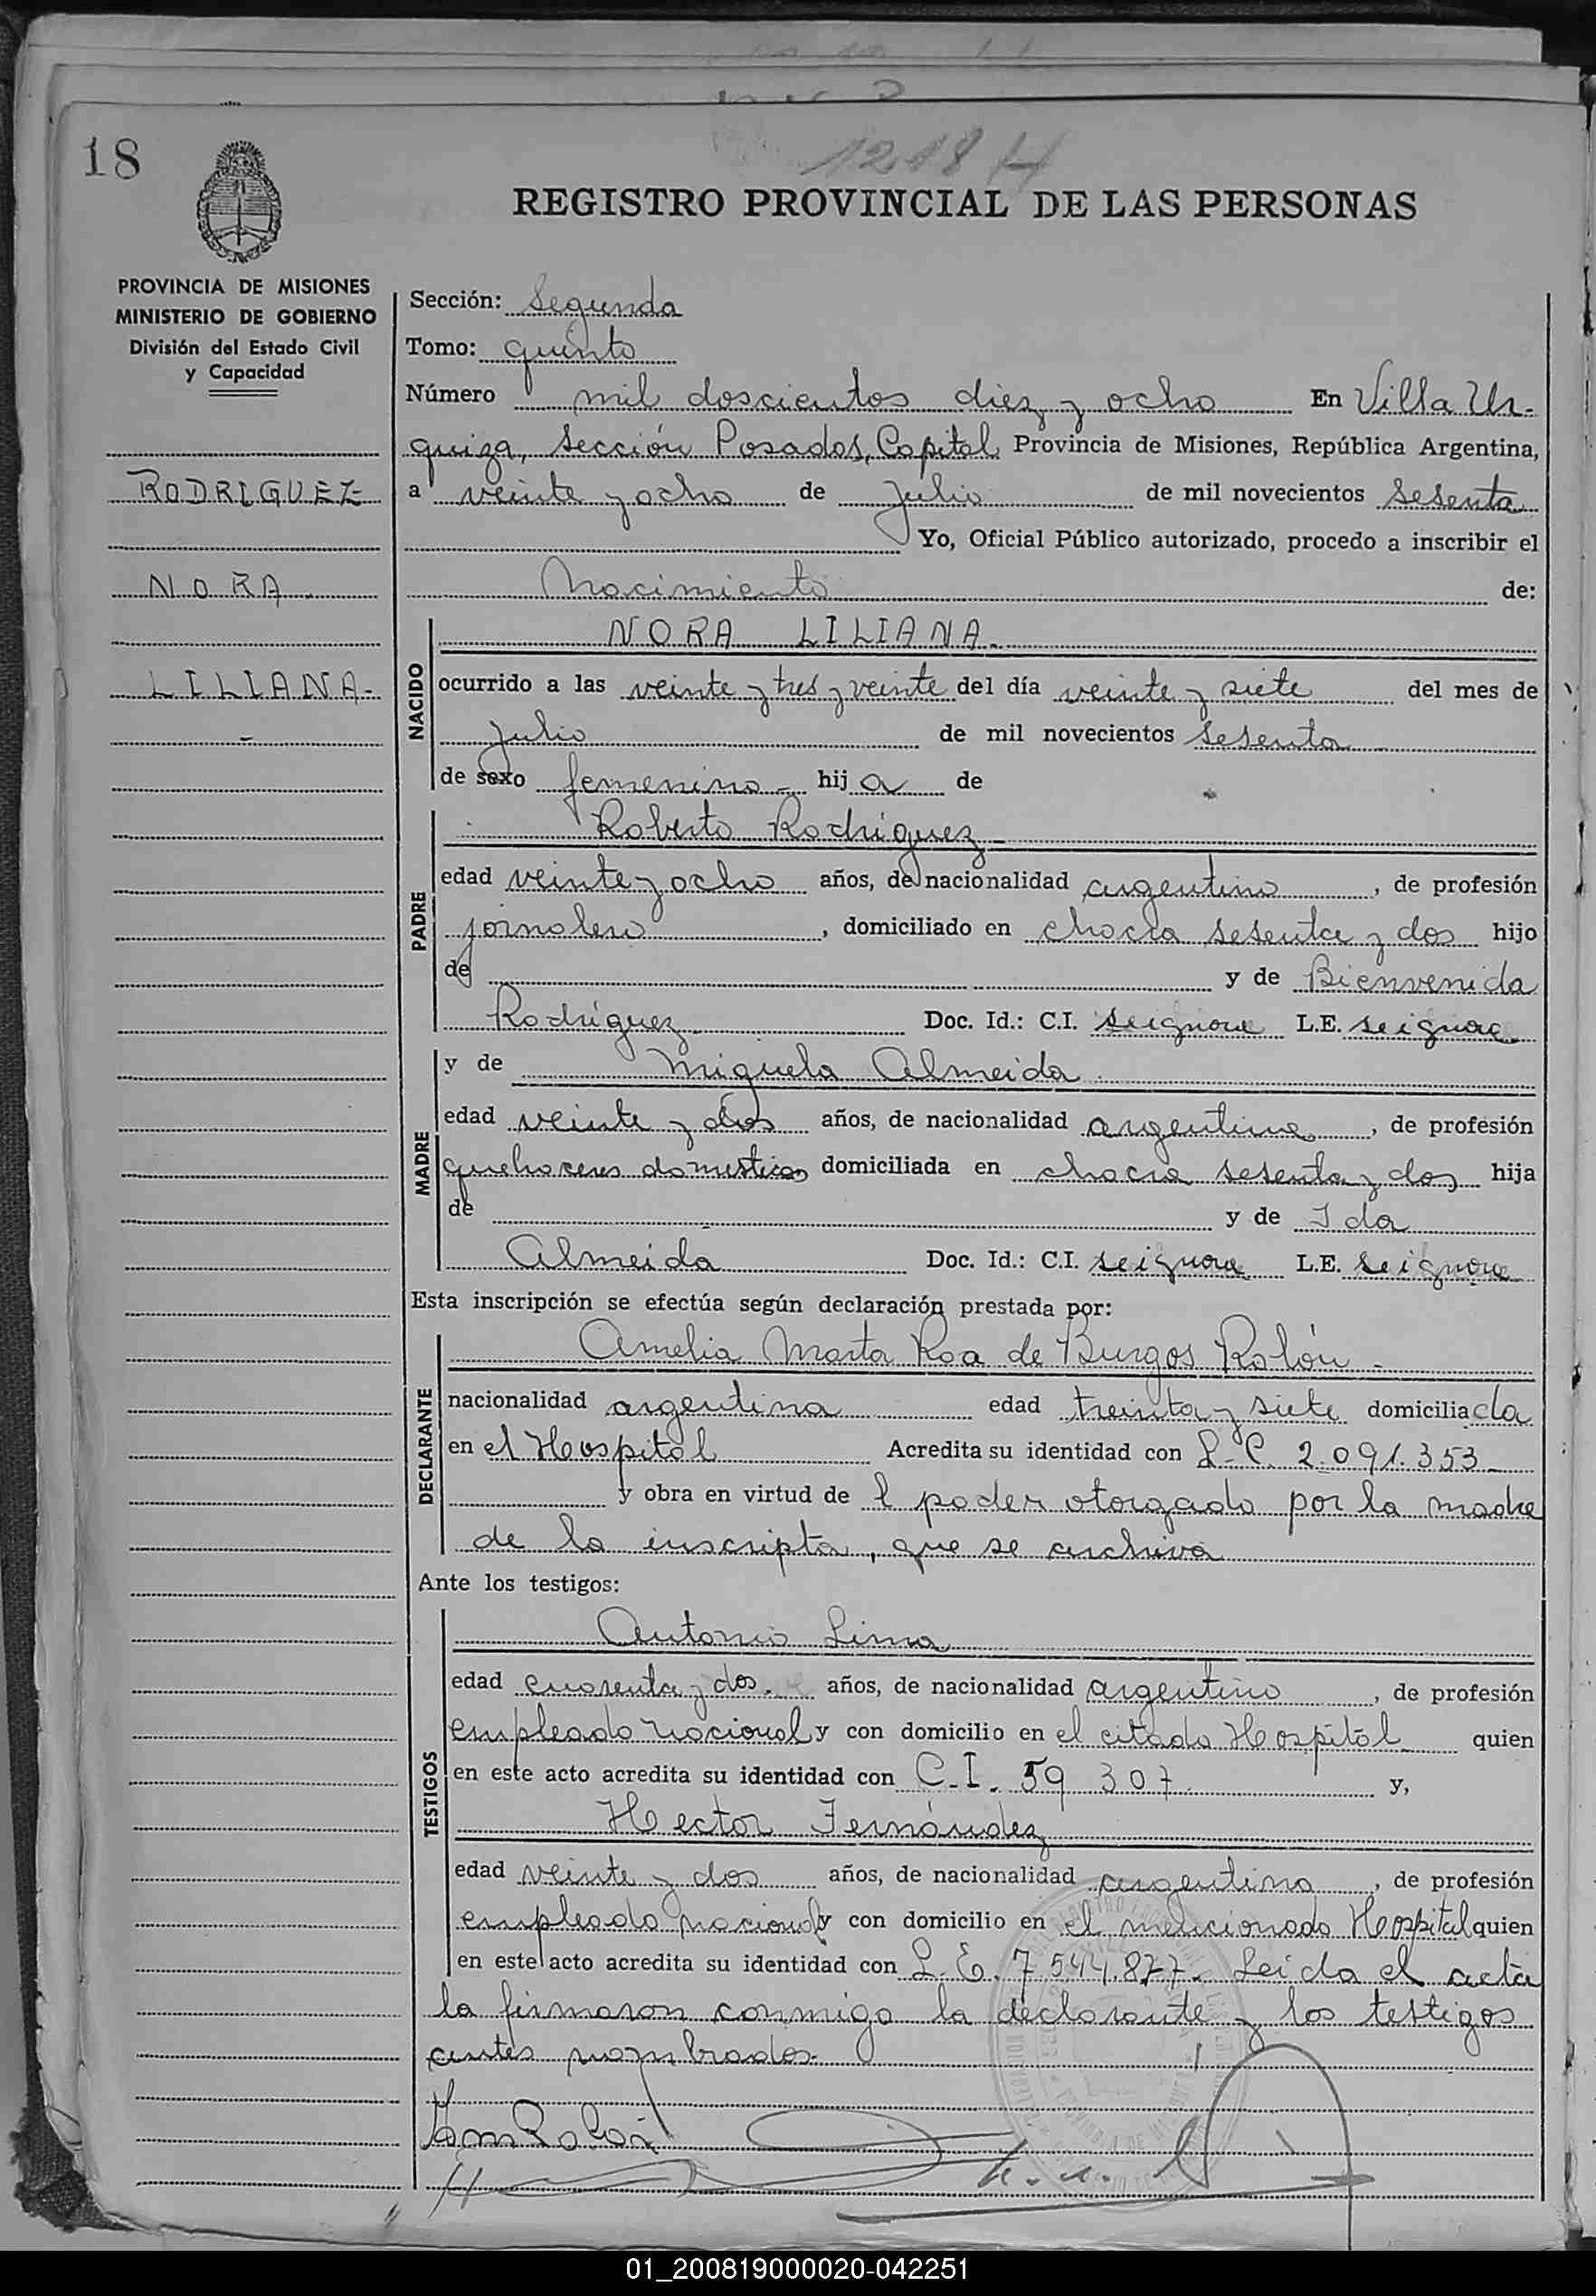 18
1218 H
REGISTRO PROVINCIAL DE LAS PERSONAS
PROVINCIA DE MISIONES
MINISTERIO DE GOBIERNO
División del Estado Civil
y Capacidad
RODRIGUEZ
NORA
LILIANA.-
Sección: Segunda
Tomo: quinto
Número mil doscientos diez y ocho En Villa Ur-
quiza, Sección Posadas, Capital Provincia de Misiones, República Argentina,
a veinte y ocho de julio de mil novecientos sesenta
Yo, Oficial Público autorizado, procedo a inscribir el
Nacimiento de:
NACIDO
NORA LILIANA.-
ocurrido a las veinte y tres y veinte del día veinte y siete del mes de
julio de mil novecientos sesenta
de sexo femenino - hij a de
PADRE
Roberto Rodríguez
edad veinte y ocho años, de nacionalidad argentino, de profesión
jornalero, domiciliado en chacra sesenta y dos hijo
de y de Bienvenida
Rodríguez Doc. Id.: C.I. se ignora L.E. se ignora
MADRE
y de Miguela Almeida
edad veinte y dos años, de nacionalidad argentina, de profesión
quehaceres domesticos domiciliada en chacra sesenta y dos hija
de y de Ida
Almeida Doc. Id.: C.I. se ignora L.E. se ignora
Esta inscripción se efectúa según declaración prestada por:
DECLARANTE
Amelia Marta Roa de Burgos Rolón -
nacionalidad argentina edad treinta y siete domiciliada
en el Hospital Acredita su identidad con L.C. 2.091.353
y obra en virtud de l poder otorgado por la madre
de la inscripta, que se archiva
Ante los testigos:
TESTIGOS
Antonio Lima
edad cuarenta y dos. años, de nacionalidad argentino, de profesión
empleado nacional y con domicilio en el citado Hospital quien
en este acto acredita su identidad con C.I. 59 307 y,
Hector Fernández
edad veinte y dos años, de nacionalidad argentino, de profesión
empleado nacional y con domicilio en el mencionado Hospital quien
en este acto acredita su identidad con L.E. 7.544.877. Leida el acta
la firmaron conmigo la declarante y los testigos
antes nombrados.-
01_200819000020-042251